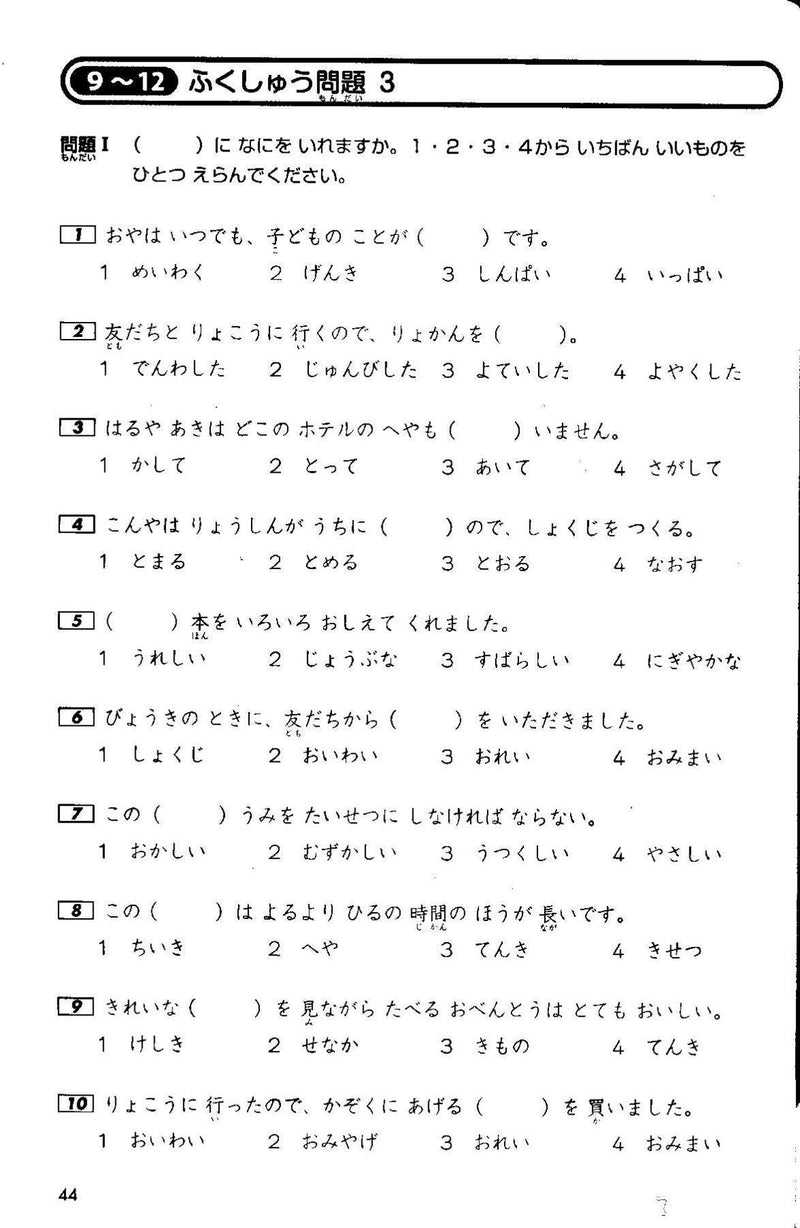 9～12 ふくしゅう問題 3
もんだい
問題Ⅰ （　　）に なにを いれますか。1・2・3・4から いちばん いいものを
もんだい
ひとつ えらんでください。
1 おやは いつでも、子どもの ことが（　　）です。
こ
1 めいわく 2 げんき 3 しんぱい 4 いっぱい
2 友だちと りょこうに 行くので、りょかんを（　　）。
とも い
1 でんわした 2 じゅんびした 3 よていした 4 よやくした
3 はるや あきは どこの ホテルの へやも（　　）いません。
1 かして 2 とって 3 あいて 4 さがして
4 こんやは りょうしんが うちに（　　）ので、しょくじを つくる。
1 とまる 2 とめる 3 とおる 4 なおす
5 （　　）本を いろいろ おしえて くれました。
ほん
1 うれしい 2 じょうぶな 3 すばらしい 4 にぎやかな
6 びょうきの ときに、友だちから（　　）を いただきました。
とも
1 しょくじ 2 おいわい 3 おれい 4 おみまい
7 この（　　）うみを たいせつに しなければ ならない。
1 おかしい 2 むずかしい 3 うつくしい 4 やさしい
8 この（　　）は よるより ひるの 時間の ほうが 長いです。
じかん なが
1 ちいき 2 へや 3 てんき 4 きせつ
9 きれいな（　　）を 見ながら たべる おべんとうは とても おいしい。
み
1 けしき 2 せなか 3 きもの 4 てんき
10 りょこうに 行ったので、かぞくに あげる（　　）を 買いました。
い か
1 おいわい 2 おみやげ 3 おれい 4 おみまい
44